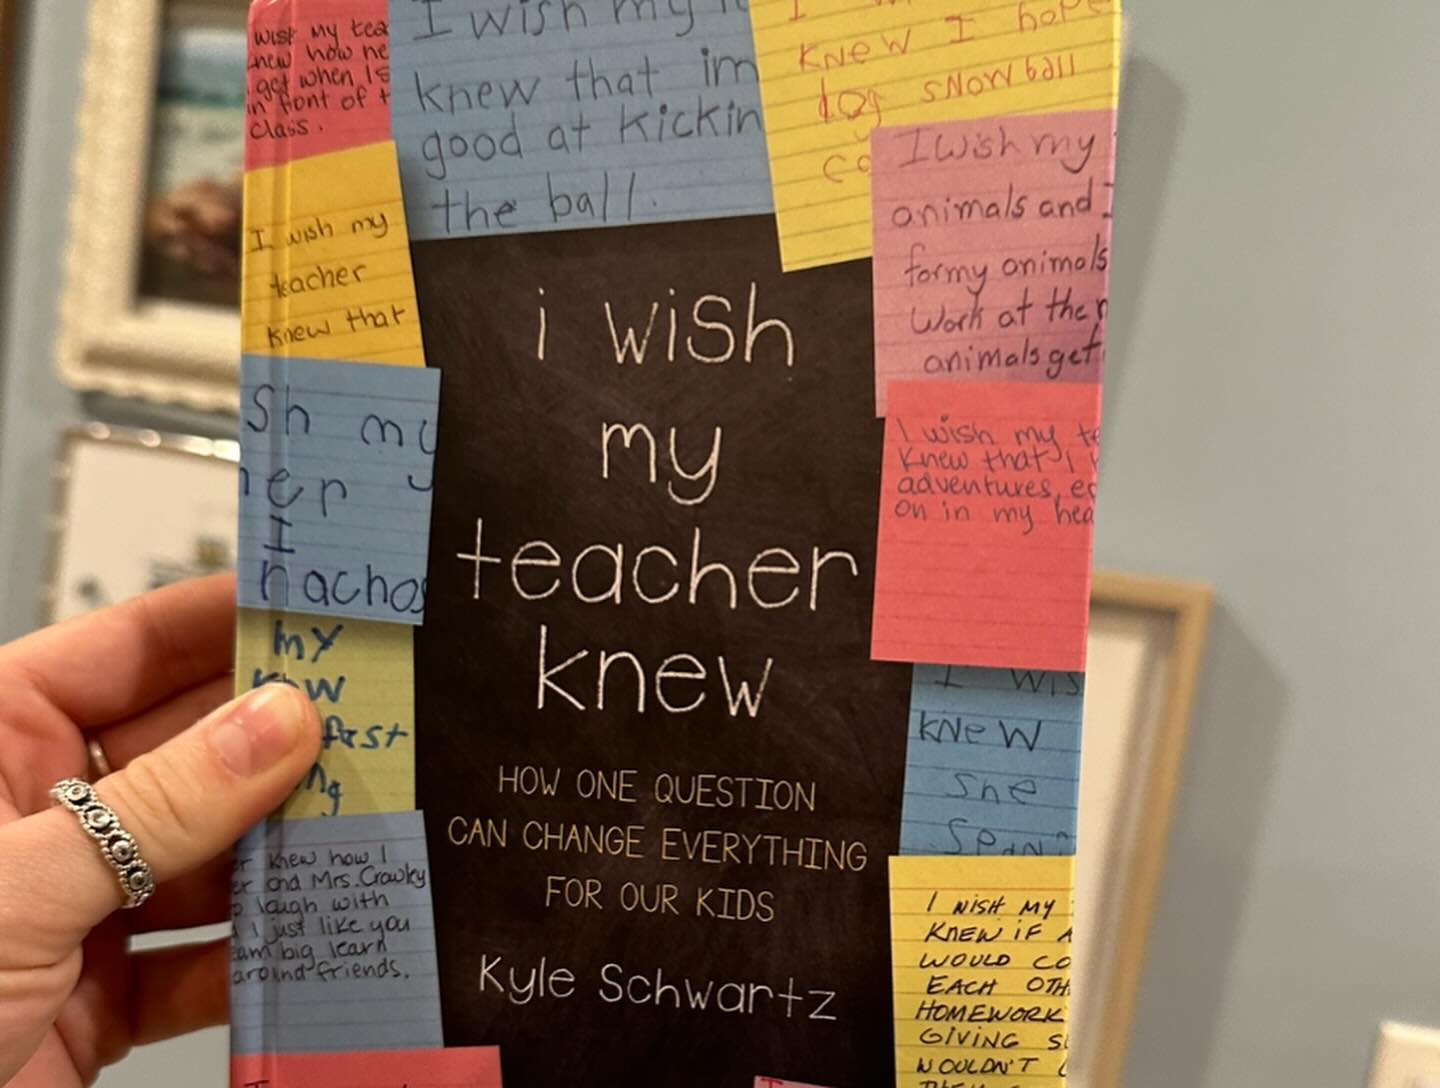 wish my tea
knew how ne
get when Is
in font of t
class.
I wish my
knew that im
good at kickin
the ball.
I
knew I hope
dog snowball
I wish my
teacher
knew that
I wish my
animals and I
formy animals
Work at the
animals get
i wish
my
teacher
knew
HOW ONE QUESTION
CAN CHANGE EVERYTHING
FOR OUR KIDS
Kyle Schwartz
sh my
her
I
nachos
my
fast
ng
er knew how I
er and Mrs. Crawley
o laugh with
d I just like you
eam big learn
around friends.
I wish my te
Knew that I
adventures, e
on in my hea
I wis
knew
she
I WISH MY
KNEW IF A
WOULD CO
EACH OTH
HOMEWORK
GIVING S
WOULDN'T